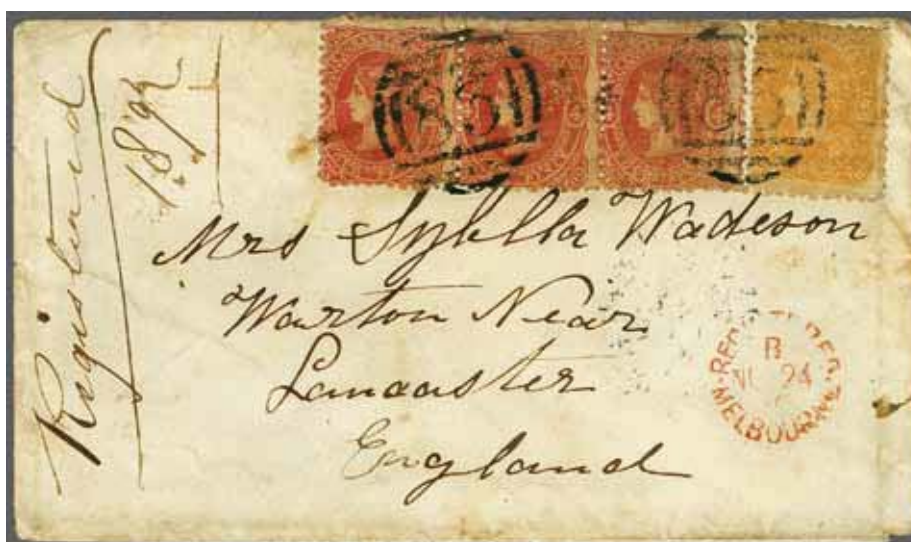 Registered
1892
85
85
Mrs Sybella Wadeson
Warton Near
Lancaster
England
REGISTERED
B
24
MELBOURNE